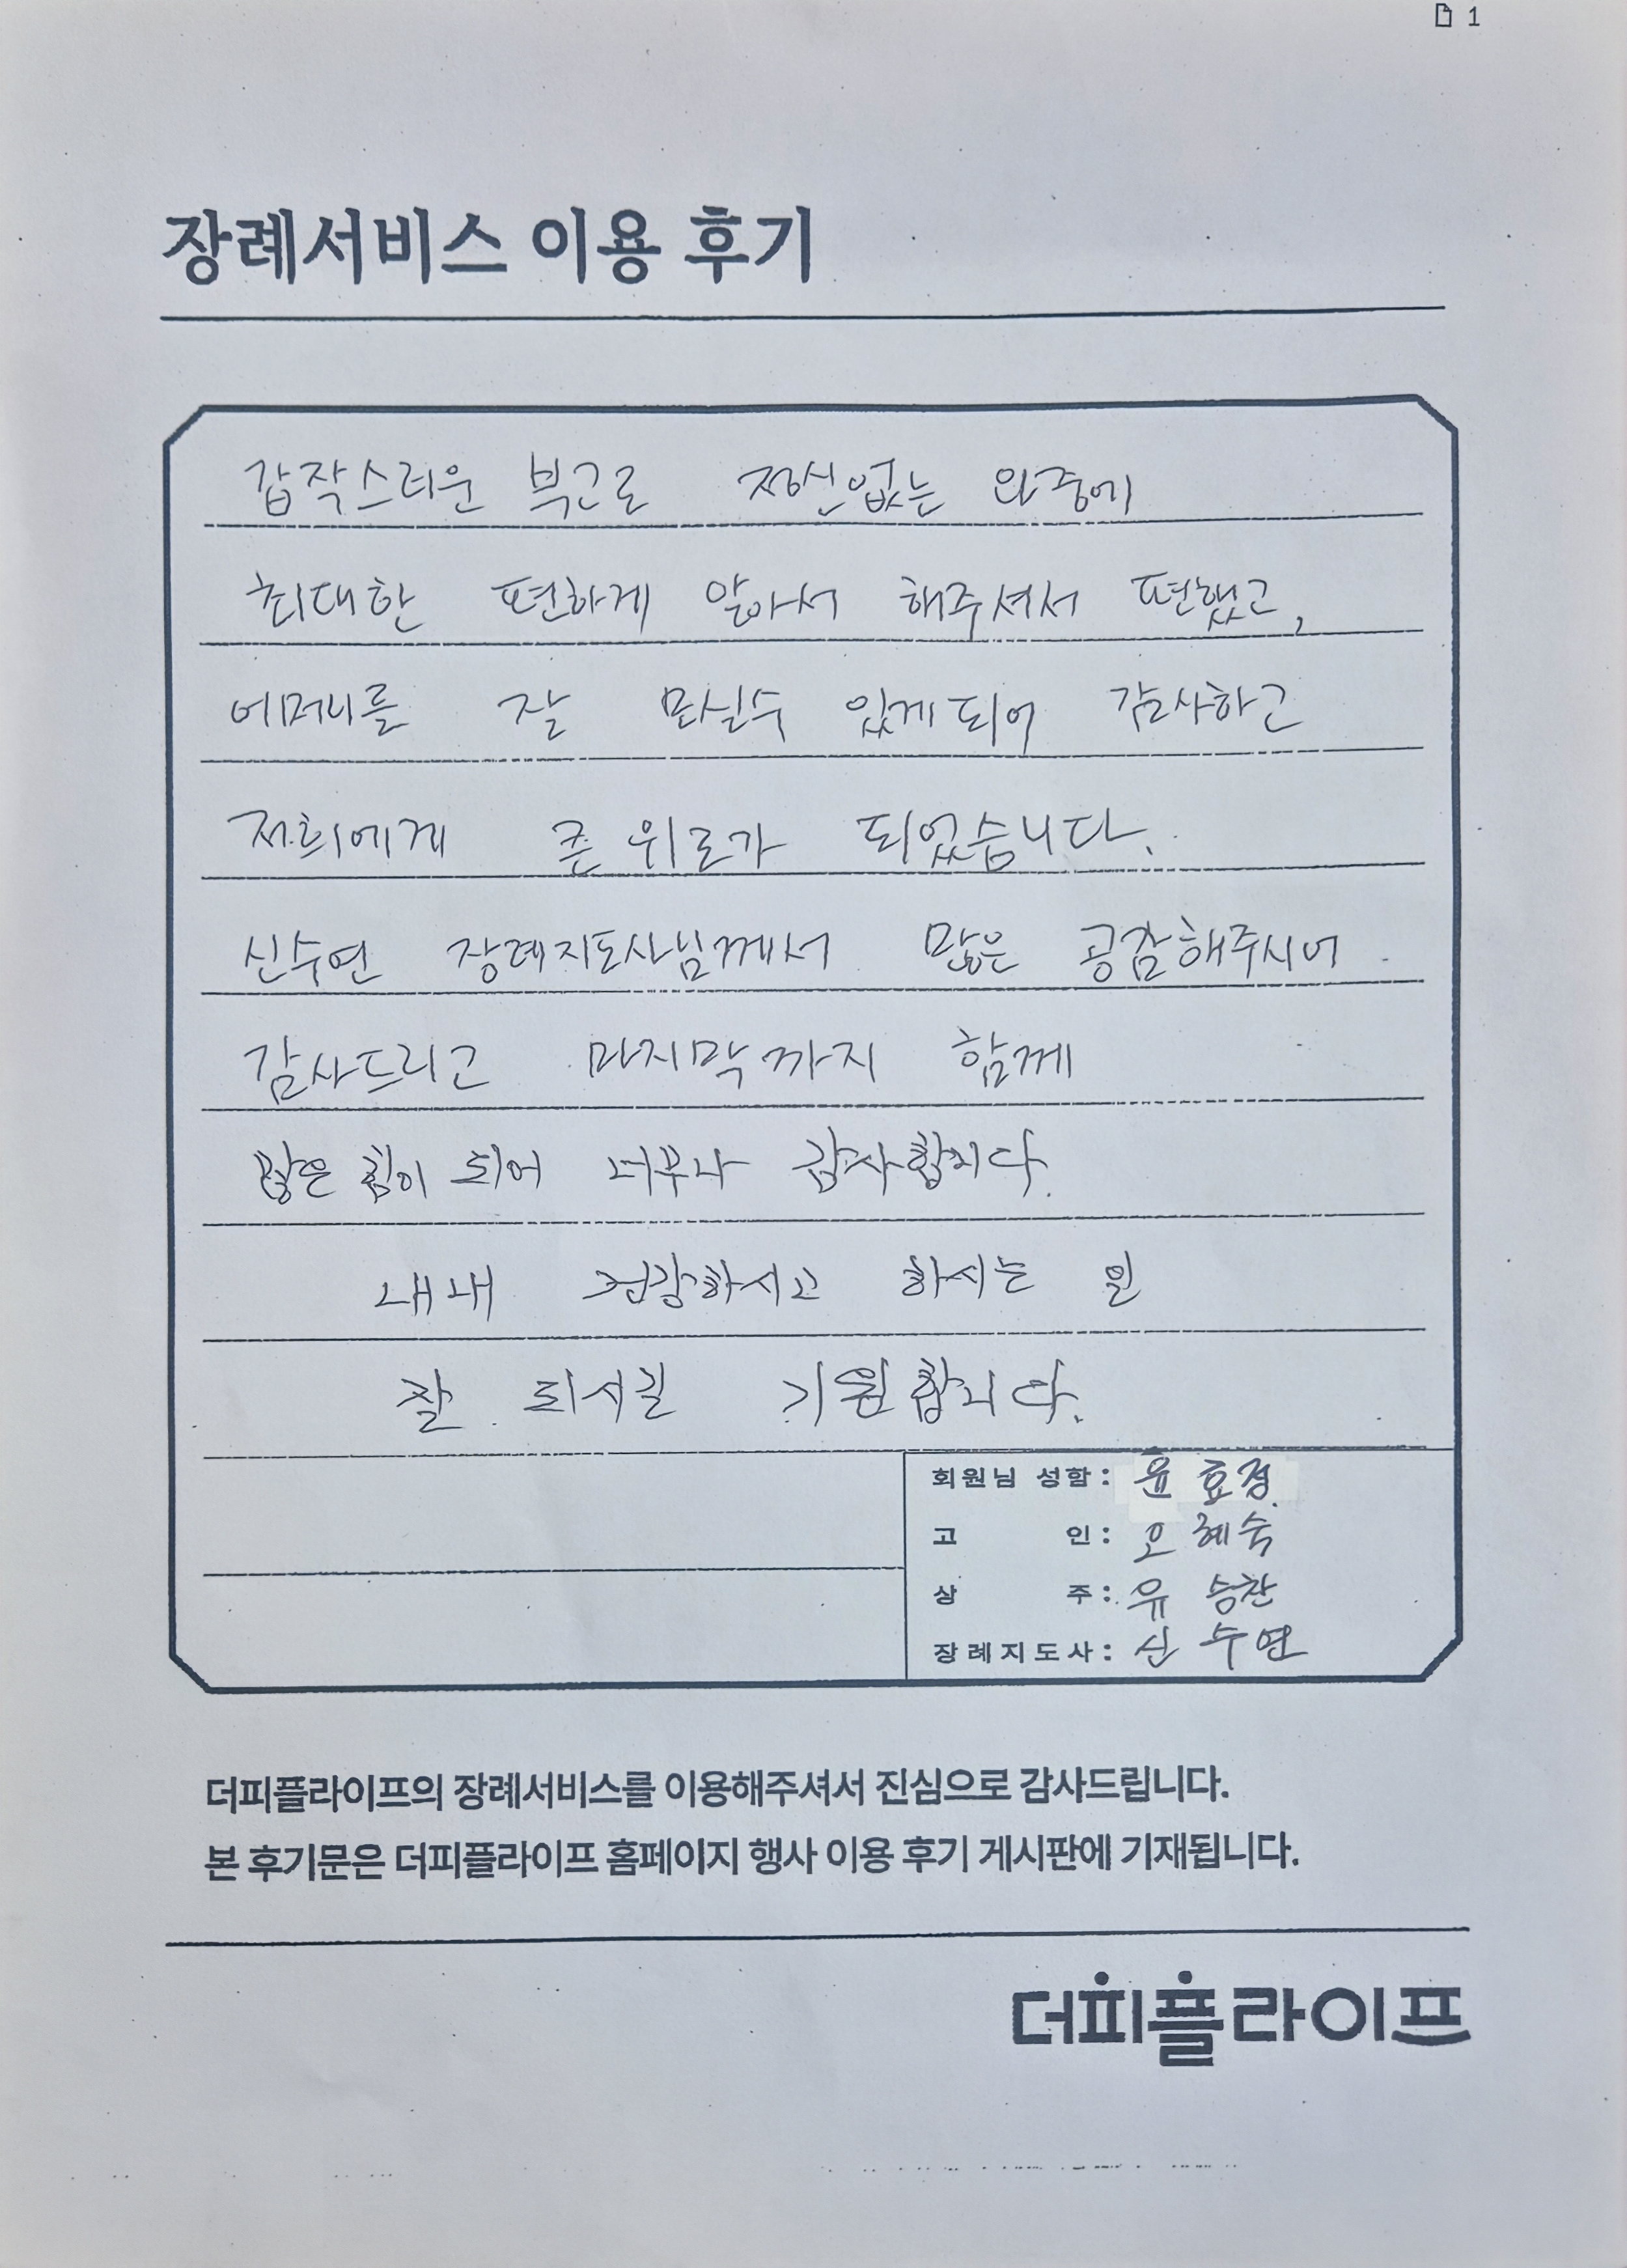 1
장례서비스 이용 후기
갑작스러운 부고로 정신없는 와중에
최대한 편하게 알아서 해주셔서 편했고,
어머니를 잘 모실수 있게되어 감사하고
저희에게 큰 위로가 되었습니다.
신수연 장례지도사님께서 많은 공감해주시어
감사드리고 마지막까지 함께
많은 힘이 되어 너무나 감사합니다.
내내 건강하시고 하시는 일
잘 되시길 기원합니다.
회원님 성함: 윤효정
고 인: 오혜숙
상 주: 유승찬
장례지도사: 신수연
더피플라이프의 장례서비스를 이용해주셔서 진심으로 감사드립니다.
본 후기문은 더피플라이프 홈페이지 행사 이용 후기 게시판에 기재됩니다.
더피플라이프